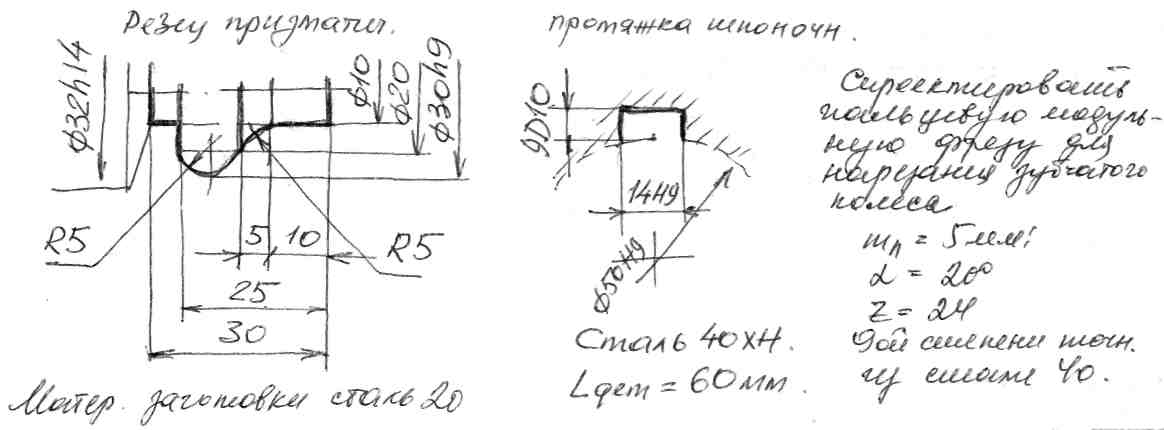 Резец призматич.
⌀32h14
⌀10
⌀20
⌀30h9
R5
5
10
R5
25
30
Матер. заготовки сталь 20
протяжка шпоночн.
9D10
14H9
⌀50H9
Сталь 40ХН.
Lдет = 60мм.
Спроектировать
пальцевую модуль-
ную фрезу для
нарезания зубчатого
колеса
mn = 5мм;
α = 20°
Z = 24
9ой степени точн.
из стали 40.